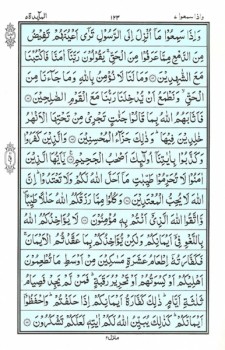 واذا سمعوا ٧ ١٢٣ المآئدة ٥
وَاِذَا سَمِعُوْا مَآ اُنْزِلَ اِلَى الرَّسُوْلِ تَرٰٓى اَعْيُنَهُمْ تَفِيْضُ
مِنَ الدَّمْعِ مِمَّا عَرَفُوْا مِنَ الْحَقِّ ۚ يَقُوْلُوْنَ رَبَّنَآ اٰمَنَّا فَاكْتُبْنَا
مَعَ الشّٰهِدِيْنَ ۝ وَمَا لَنَا لَا نُؤْمِنُ بِاللّٰهِ وَمَا جَآءَنَا مِنَ
الْحَقِّ ۙ وَنَطْمَعُ اَنْ يُّدْخِلَنَا رَبُّنَا مَعَ الْقَوْمِ الصّٰلِحِيْنَ ۝
فَاَثَابَهُمُ اللّٰهُ بِمَا قَالُوْا جَنّٰتٍ تَجْرِيْ مِنْ تَحْتِهَا الْاَنْهٰرُ
خٰلِدِيْنَ فِيْهَا ۭ وَذٰلِكَ جَزَآءُ الْمُحْسِنِيْنَ ۝ وَالَّذِيْنَ كَفَرُوْا
وَكَذَّبُوْا بِاٰيٰتِنَآ اُولٰٓئِكَ اَصْحٰبُ الْجَحِيْمِ ۝ يٰٓاَيُّهَا الَّذِيْنَ
اٰمَنُوْا لَا تُحَرِّمُوْا طَيِّبٰتِ مَآ اَحَلَّ اللّٰهُ لَكُمْ وَلَا تَعْتَدُوْا ۭ اِنَّ
اللّٰهَ لَا يُحِبُّ الْمُعْتَدِيْنَ ۝ وَكُلُوْا مِمَّا رَزَقَكُمُ اللّٰهُ حَلٰلًا طَيِّبًا ۠
وَّاتَّقُوا اللّٰهَ الَّذِيْٓ اَنْتُمْ بِهٖ مُؤْمِنُوْنَ ۝ لَا يُؤَاخِذُكُمُ اللّٰهُ
بِاللَّغْوِ فِيْٓ اَيْمَانِكُمْ وَلٰكِنْ يُّؤَاخِذُكُمْ بِمَا عَقَّدْتُّمُ الْاَيْمَانَ ۚ
فَكَفَّارَتُهٗٓ اِطْعَامُ عَشَرَةِ مَسٰكِيْنَ مِنْ اَوْسَطِ مَا تُطْعِمُوْنَ
اَهْلِيْكُمْ اَوْ كِسْوَتُهُمْ اَوْ تَحْرِيْرُ رَقَبَةٍ ۭ فَمَنْ لَّمْ يَجِدْ فَصِيَامُ
ثَلٰثَةِ اَيَّامٍ ۭ ذٰلِكَ كَفَّارَةُ اَيْمَانِكُمْ اِذَا حَلَفْتُمْ ۭ وَاحْفَظُوْٓا
اَيْمَانَكُمْ ۭ كَذٰلِكَ يُبَيِّنُ اللّٰهُ لَكُمْ اٰيٰتِهٖ لَعَلَّكُمْ تَشْكُرُوْنَ ۝
منزل ٢